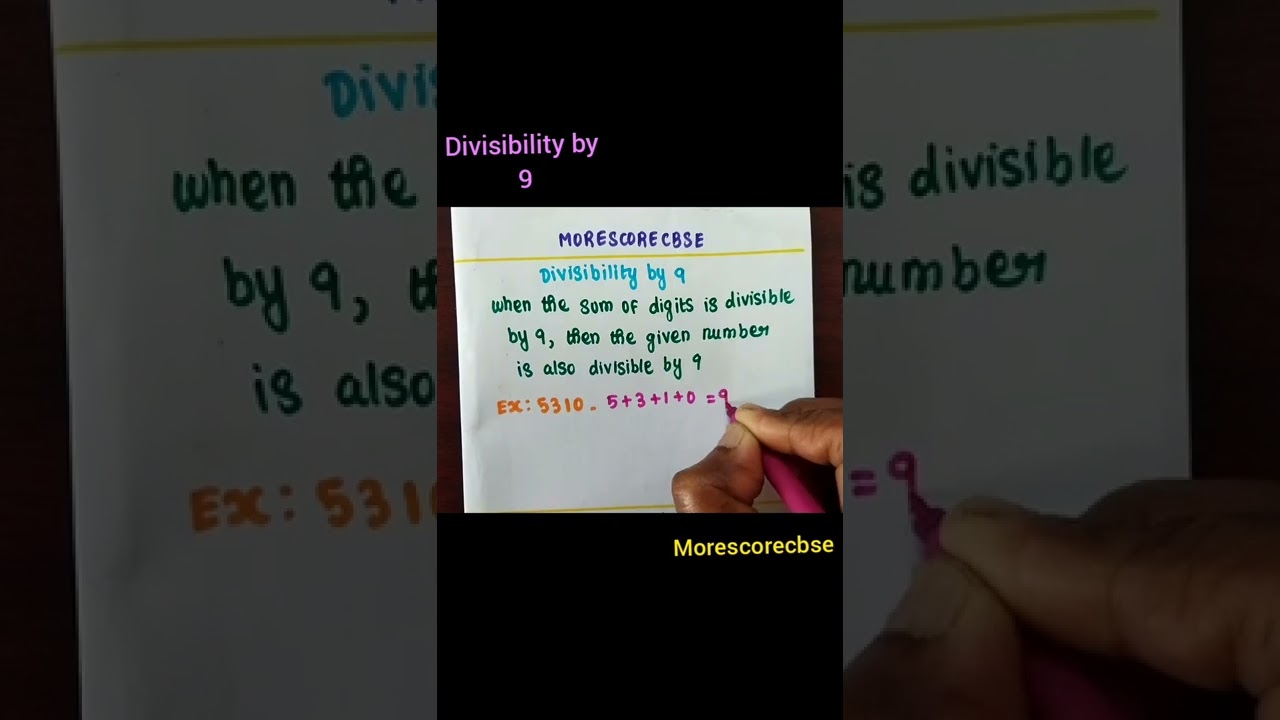 Divisibility by
9
MORESCORECBSE
Divisibility by 9
when the sum of digits is divisible
by 9, then the given number
is also divisible by 9
Ex: 5310 - 5+3+1+0 = 9
Morescorecbse